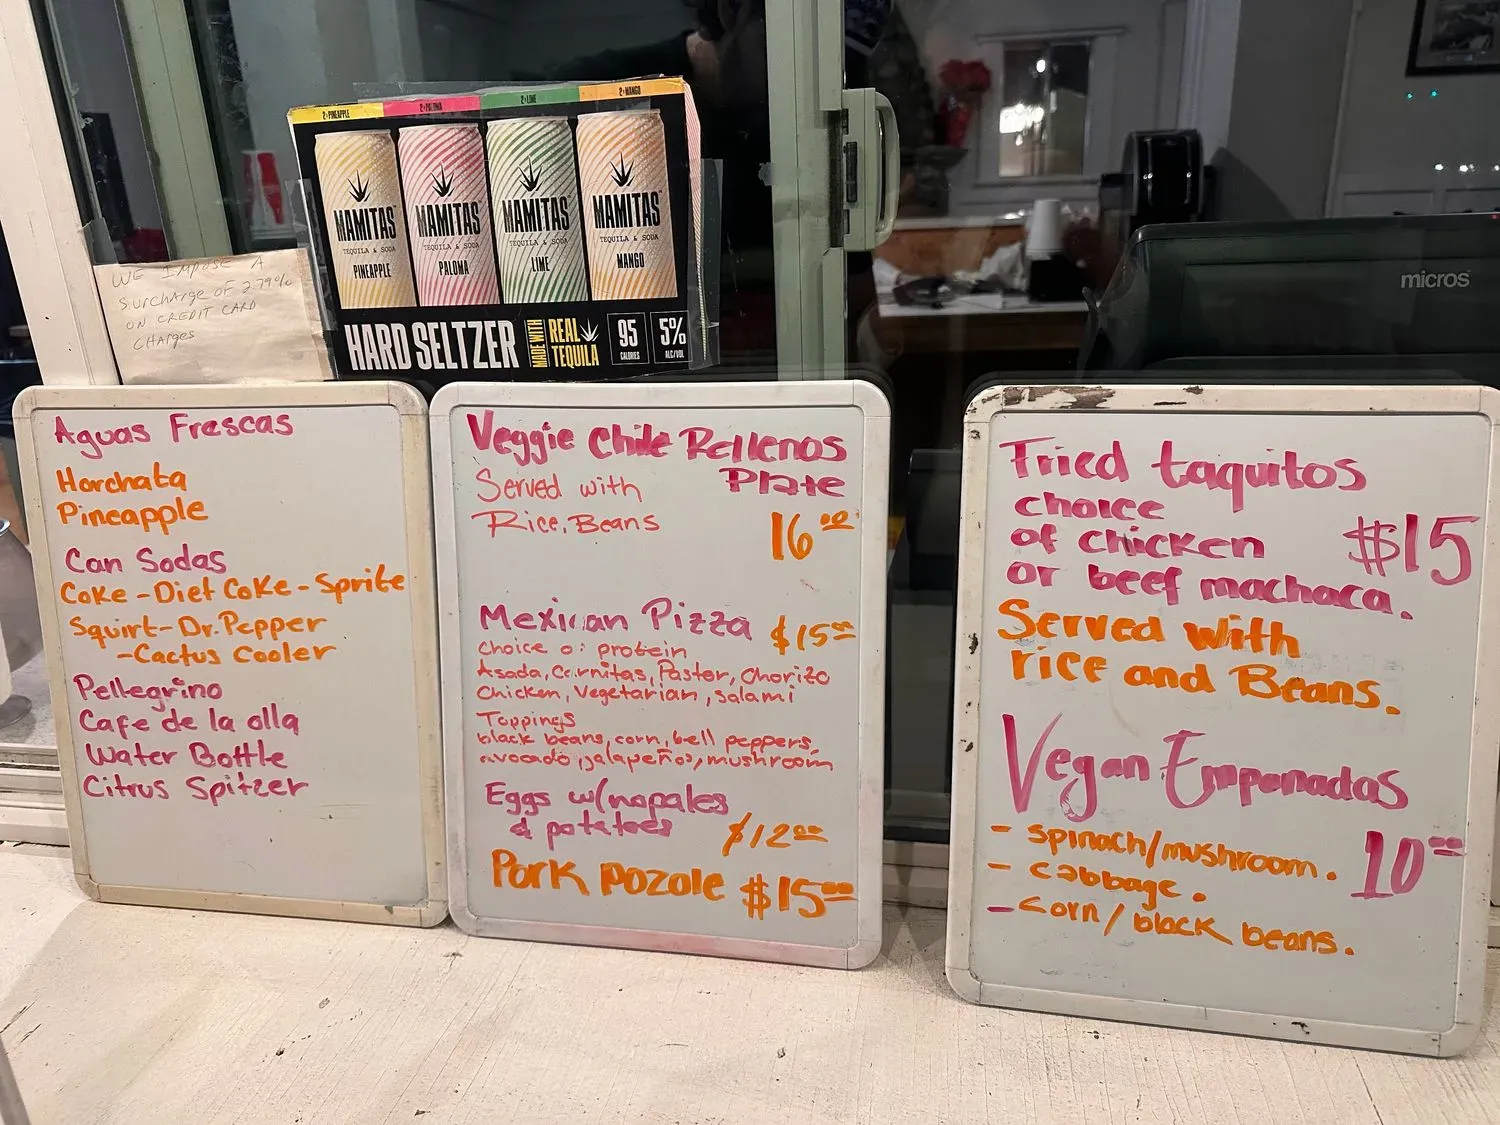 2×PINEAPPLE
2×PALOMA
2×LIME
2×MANGO
MAMITAS
TEQUILA & SODA
PINEAPPLE
MAMITAS
TEQUILA & SODA
PALOMA
MAMITAS
TEQUILA & SODA
LIME
MAMITAS
TEQUILA & SODA
MANGO
HARD SELTZER
MADE WITH
REAL
TEQUILA
95
CALORIES
5%
ALC/VOL
WE IMPOSE A
SURCHARGE OF 2.79%
ON CREDIT CARD
CHARGES
micros
Aguas Frescas
Horchata
Pineapple
Can Sodas
Coke - Diet Coke - Sprite
Squirt - Dr. Pepper
- Cactus Cooler
Pellegrino
Cafe de la olla
Water Bottle
Citrus Spitzer
Veggie Chile Rellenos
Plate
Served with
Rice, Beans
16.00
Mexican Pizza $15.00
choice o: protein
Asada, Carnitas, Pastor, Chorizo
Chicken, Vegetarian, Salami
Toppings
black beans, corn, bell peppers,
avocado, jalapeños, mushroom
Eggs w/nopales
& potatoes $12.00
Pork Pozole $15.00
Fried taquitos
choice
of chicken
or beef machaca.
$15
Served with
rice and Beans.
Vegan Empanadas
- spinach/mushroom.
- cabbage.
- corn/black beans.
10.00